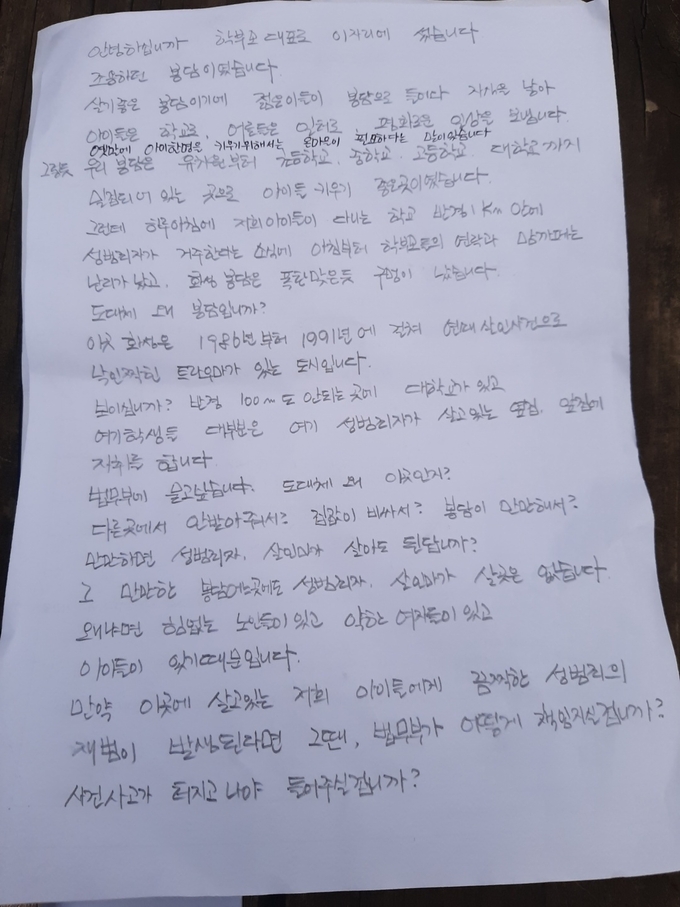 안녕하십니까 학부모 대표로 이자리에 섰습니다
조용하던 봉담이였습니다.
살기좋은 봉담이기에 젊은이들이 봉담으로 들어와 자식을 낳아
아이들은 학교로, 어른들은 일터로 평화로운 일상을 보냅니다.
옛말에 아이한명을 키우기위해서는 온마을이 필요하다는 말이있습니다
그렇듯 우리 봉담은 유치원부터 초등학교, 중학교, 고등학교, 대학교까지
밀집되어 있는 곳으로 아이들 키우기 좋은곳이였습니다.
그런데 하루아침에 저희아이들이 다니는 학교 반경 1Km 안에
성범죄자가 거주한다는 소식에 아침부터 학부모들의 연락과 맘까페는
난리가 났고, 화성 봉담은 폭탄맞은듯 구멍이 났습니다.
도대체 왜 봉담입니까?
이곳 화성은 1986년부터 1991년에 걸쳐 연쇄살인사건으로
낙인찍힌 트라우마가 있는 도시입니다.
보이십니까? 반경 100m도 안되는 곳에 대학교가 있고
여기학생들 대부분은 여기 성범죄자가 살고있는 옆집, 앞집에
자취를 합니다
법무부에 묻고싶습니다. 도대체 왜 이곳인지?
다른곳에서 안받아줘서? 집값이 비싸서? 봉담이 만만해서?
만만하면 성범죄자, 살인마가 살아도 된답니까?
그 만만한 봉담어느곳에도 성범죄자, 살인마가 살곳은 없습니다.
왜냐면 힘없는 노인들이 있고 약한 여자들이 있고
아이들이 있기때문입니다.
만약 이곳에 살고있는 저희 아이들에게 끔찍한 성범죄의
재범이 발생된다면 그땐, 법무부가 어떻게 책임지실겁니까?
사건사고가 터지고 나야 들어주실겁니까?